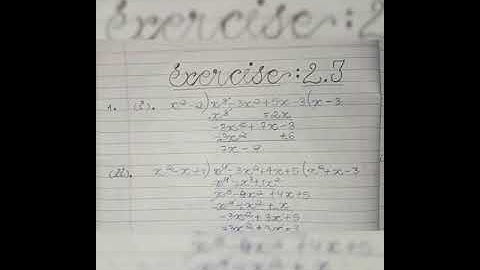 exercise:2.3
1. (i). x²-2) x³-3x²+5x-3 (x-3
x³ -2x
-3x²+7x-3
-3x² +6
7x-9
(ii). x²-x+1) x⁴-3x²+4x+5 (x²+x-3
x⁴-x³+x²
x³-4x²+4x+5
x³-x²+x
-3x²+3x+5
-3x²+3x-3